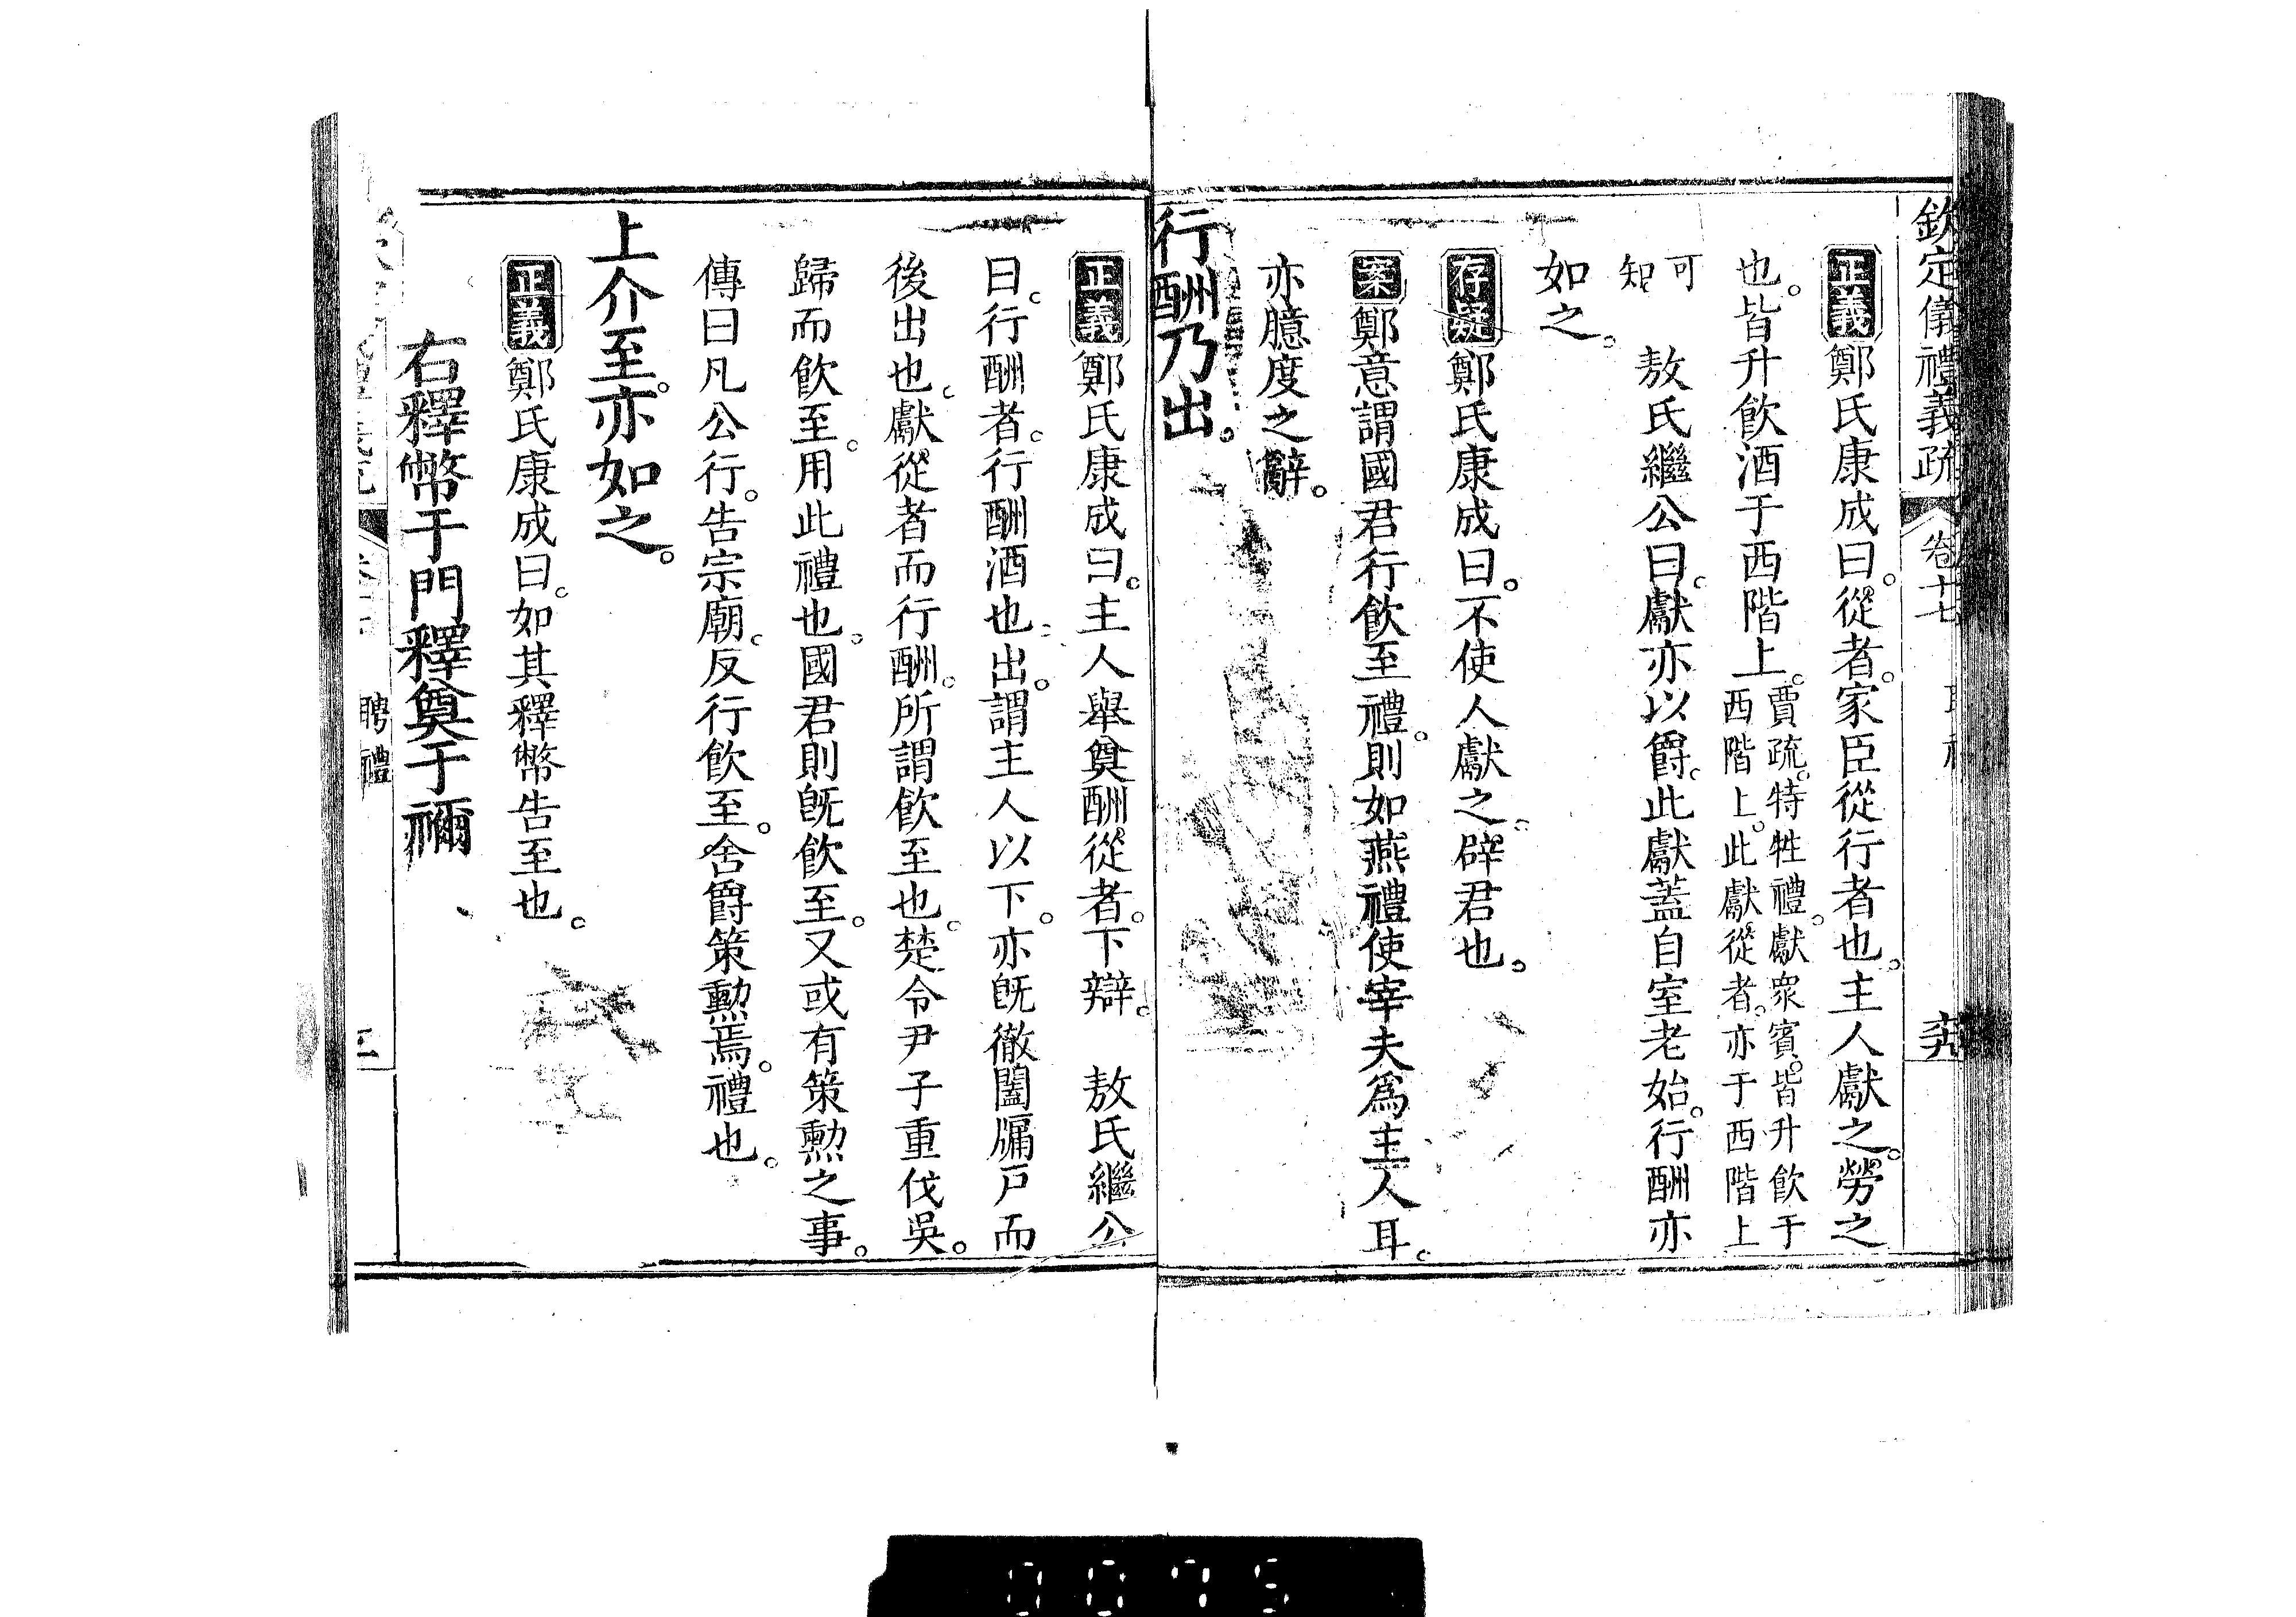 欽定儀禮義疏 卷十七
正義鄭氏康成曰。從者。家臣從行者也。主人獻之。勞之
也。皆升飲酒于西階上。賈疏。特牲禮。獻衆賓。皆升飲于
西階上。此獻從者。亦于西階上
可
知 敖氏繼公曰。獻亦以爵。此獻蓋自室老始。行酬亦
如之。
存疑鄭氏康成曰。不使人獻之。辟君也。
案鄭意謂國君行飲至禮。則如燕禮使宰夫爲主人耳。
亦臆度之辭。
行酬乃出。
正義鄭氏康成曰。主人舉奠酬從者。下辯。 敖氏繼公
曰。行酬者。行酬酒也。出。謂主人以下。亦旣徹闔牖戸而
後出也。獻從者而行酬。所謂飲至也。楚令尹子重伐吳。
歸而飲至。用此禮也。國君則旣飲至。又或有策勲之事。
傳曰凡公行。告宗廟。反行飲至。舍爵策勲焉。禮也。
上介至。亦如之。
正義鄭氏康成曰。如其釋幣告至也。
右釋幣于門釋奠于禰
聘禮
0075